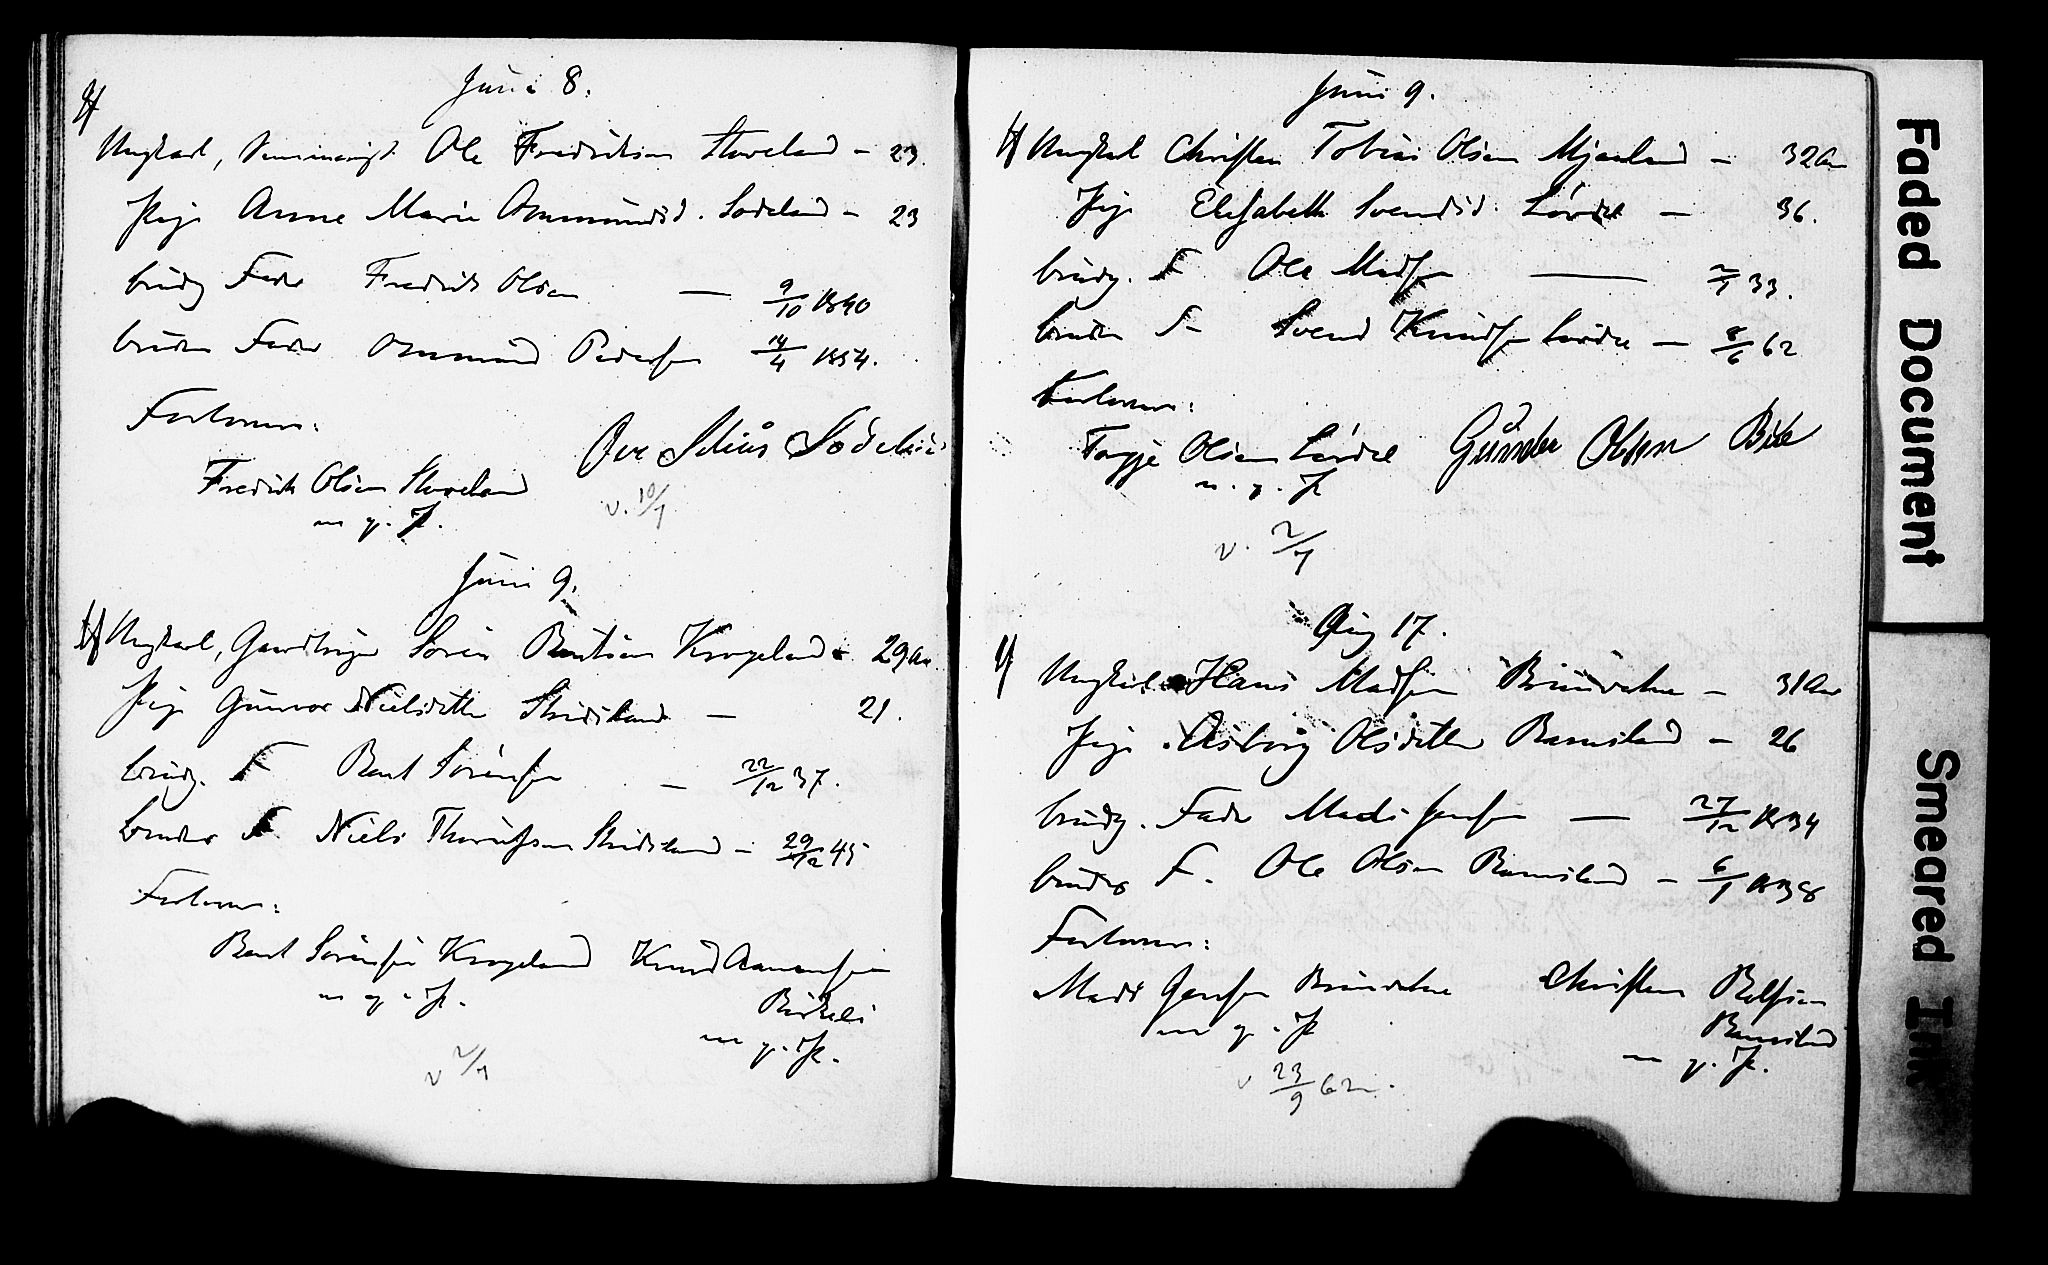 Juni 8.
Ungkarl, Seminarist Ole Fredriksen Stoveland - 23
Pige Anne Marie Ommundsd. Sodeland - 23
brudg Fader Fredrik Olsen — 9/10 1840
bruden Fader Ommund Pedersen 14/4 1854.
Forlovere:
Ove Sodeland
Fredrik Olsen Stoveland
m. p. P.
v. 10/7
Juni 9.
Ungkarl, Gaardbruger Søren Bentsen Krogeland - 29 Aar
Pige Gunvor Nielsdatter Stridsland — 21.
brudg. F Bent Sørensen — 22/12 37.
brudes F Niels Stridsland - 29/12 45
Forlovere:
Bent Sørensen Krogeland Knud Aanensen
m. p. P. Birkeli
m. p. P.
v 2/7
Juni 9.
Ungkarl Christen Tobias Olsen Mjaaland - 32 Aar
Pige Elisabeth Svendsd. Lørdal — 36.
brudg. F Ole Madsen — 2/1 33.
bruden F Svend Knudsen Lørdal — 8/6 62
Forlovere:
Tarjje Olsen Lørdal Gunder Olsen Bie
m. p. P.
v. 2/7
Aug 17.
Ungkarl Hans Madsen Bruvatne - 31 Aar
Pige Asborg Olsdatter Ramsland - 26
brudg. Fader Mads Jensen — 27/12 1834
brudes F. Ole Olsen Ramsland - 6/1 1838
Forlovere:
Mads Jensen Bruvatne Christen
m. p. P Ramsland
m. p. P.
v 23/9 62
Faded Document
Smeared Ink